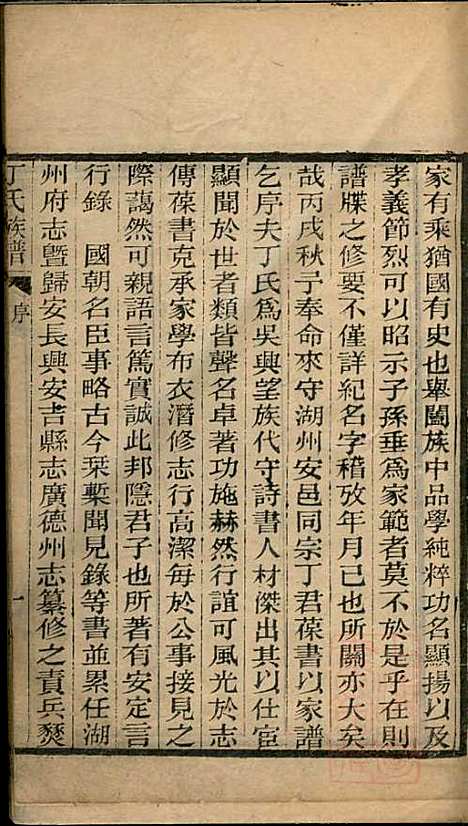 家有乘猶國有史也舉闔族中品學純粹功名顯揚以及
孝義節烈可以昭示子孫垂為家範者莫不於是乎在則
譜牒之修要不僅詳紀名字稽攷年月已也所關亦大矣
哉丙戌秋予奉命來守湖州安邑同宗丁君葆書以家譜
乞序夫丁氏為吳興望族代守詩書人材傑出其以仕宦
顯聞於世者類皆聲名卓著功施赫然行誼可風光於志
傳葆書克承家學布衣潛修志行高潔每於公事接見之
際藹然可親語言篤實誠此邦隱君子也所著有安定言
行錄　國朝名臣事略古今槧聞見錄等書並累任湖
州府志暨歸安長興安吉縣志廣德州志纂修之責兵燹
丁氏族譜　序　一